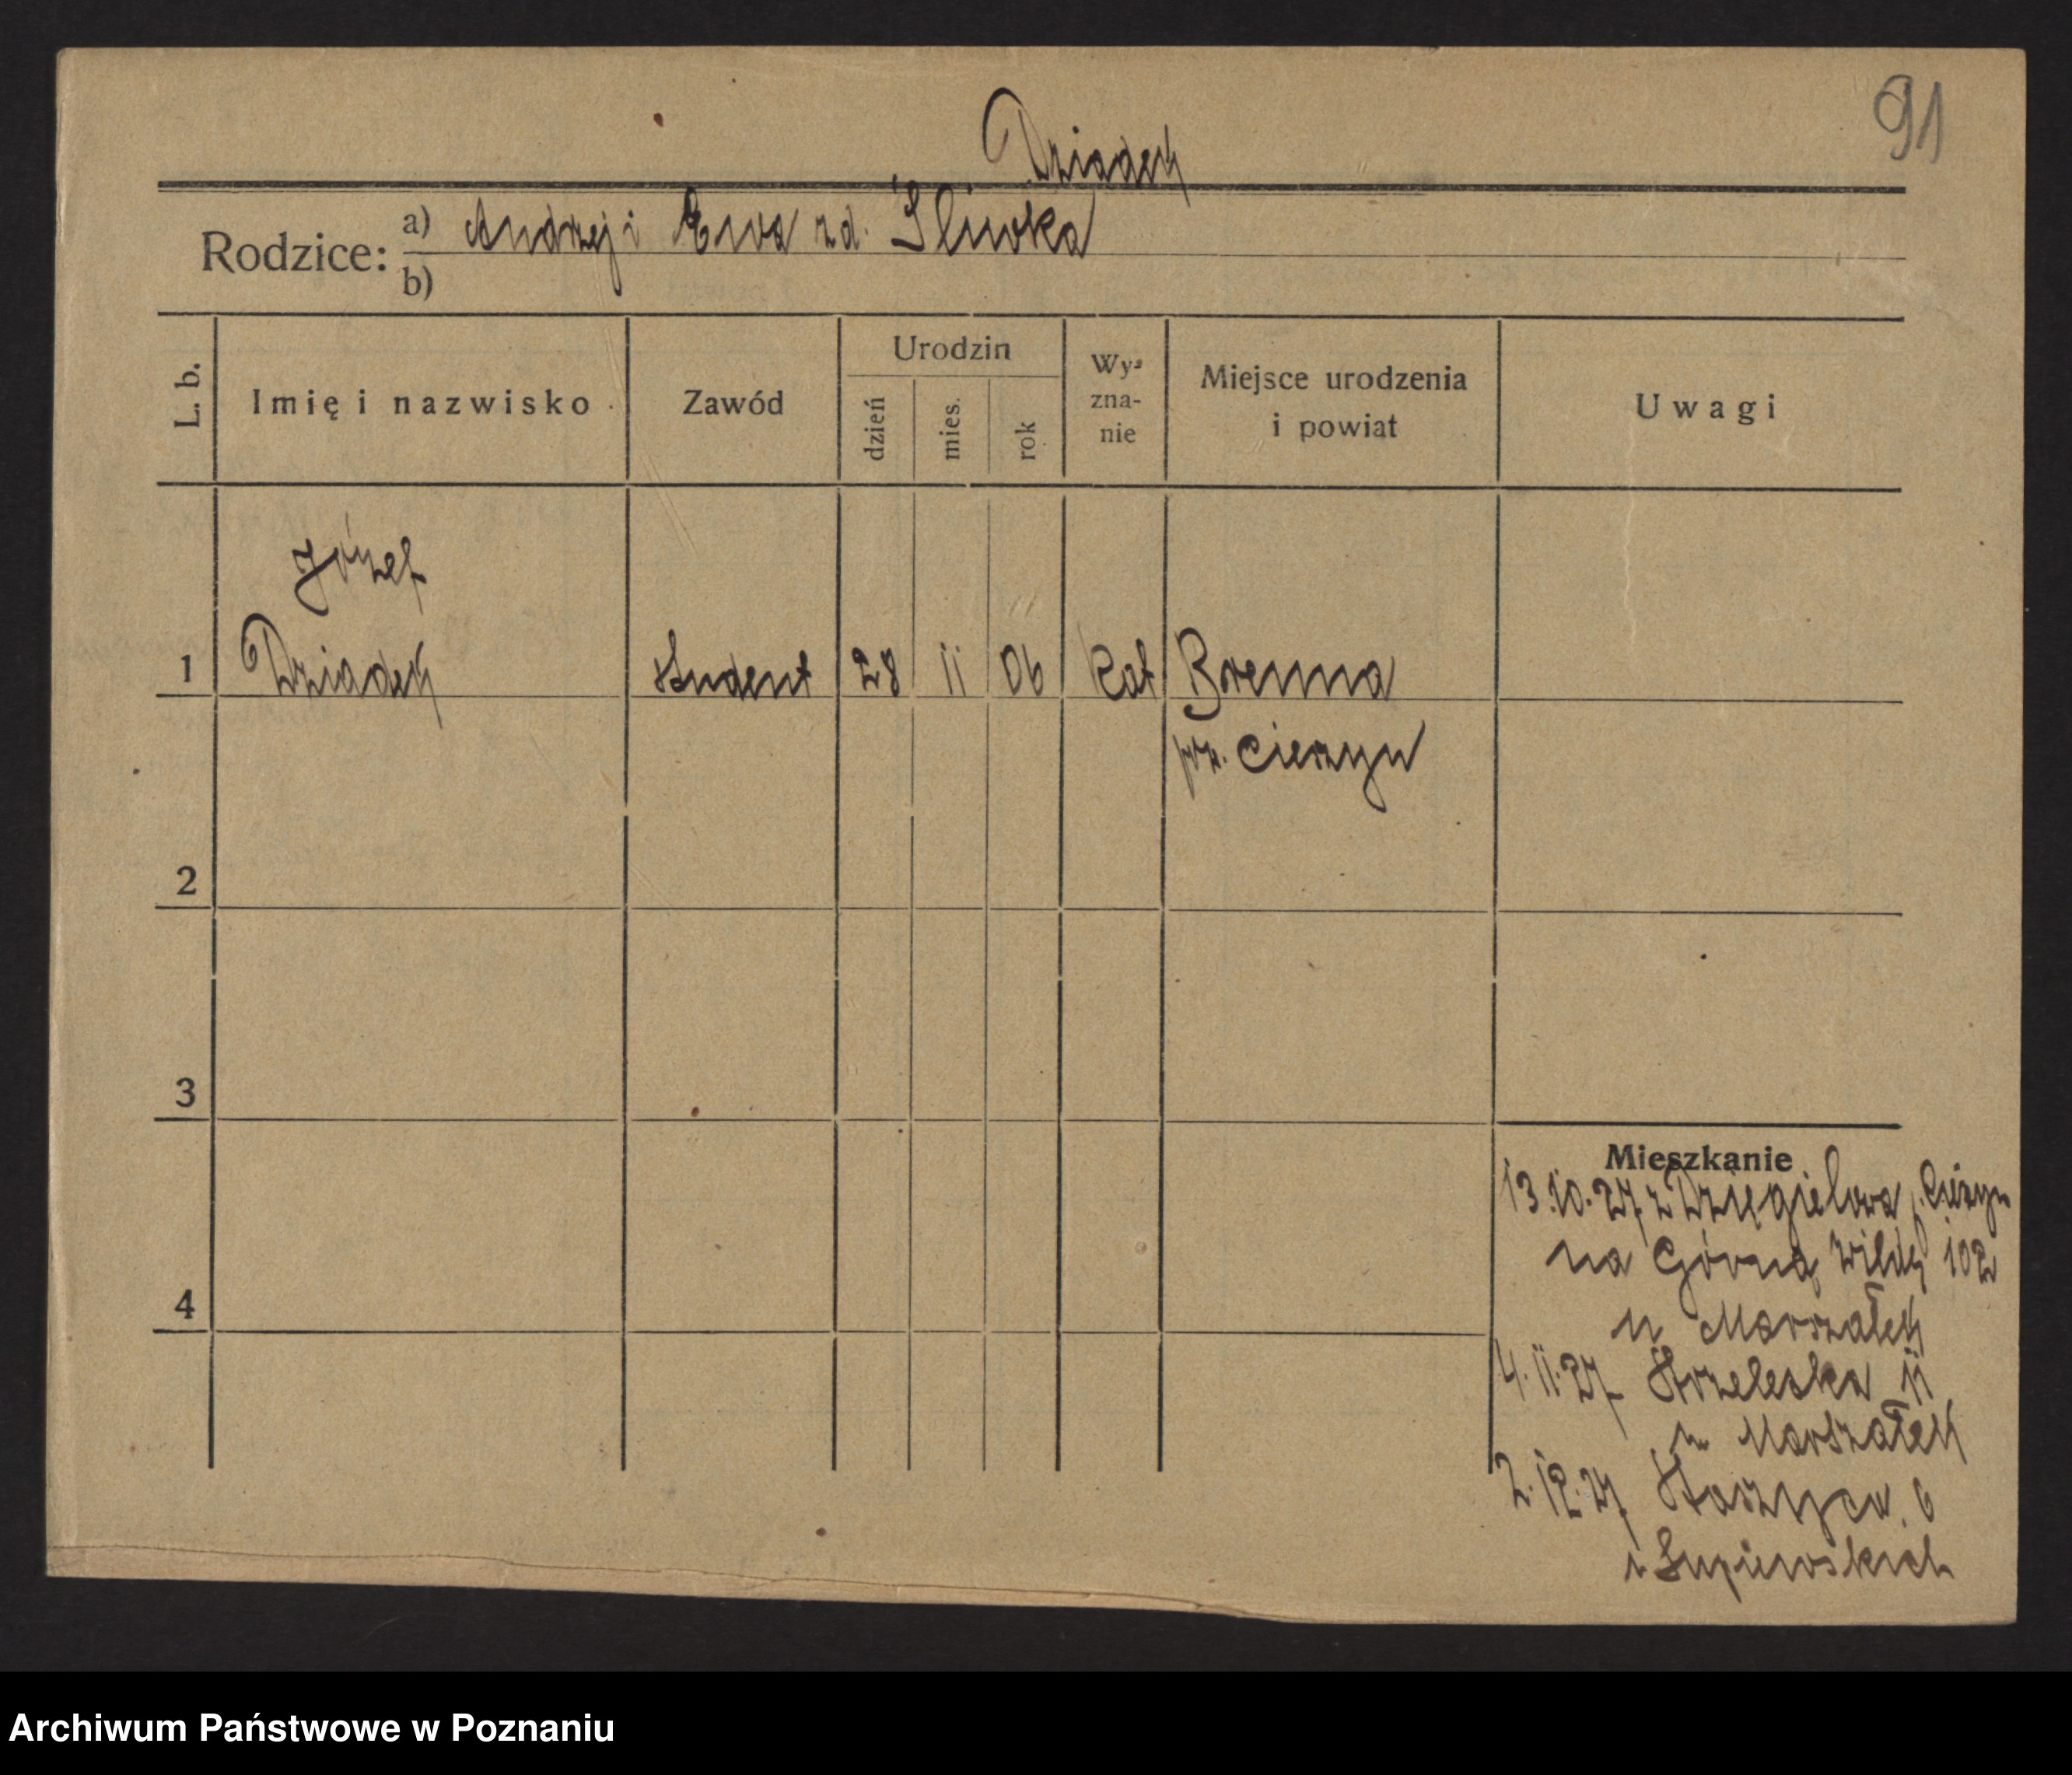 91
Dziadek
Rodzice: a) Andrzej i Ewa zd. Śliwka
b)
L. b.
Imię i nazwisko
Zawód
Urodzin
dzień
mies.
rok
Wy-
zna-
nie
Miejsce urodzenia
i powiat
Uwagi
Józef
1 Dziadek Student 28 11 06 kat Brenna
pw. Cieszyn
2
3
4
Mieszkanie
13.10.27 z Dzięgielowa p. Cieszyn
na Górną Wildę 102
u Marszałek
4.11.27 Strzelecka 11
u Marszałek
2.12.27 Staszyca 6
Archiwum Państwowe w Poznaniu